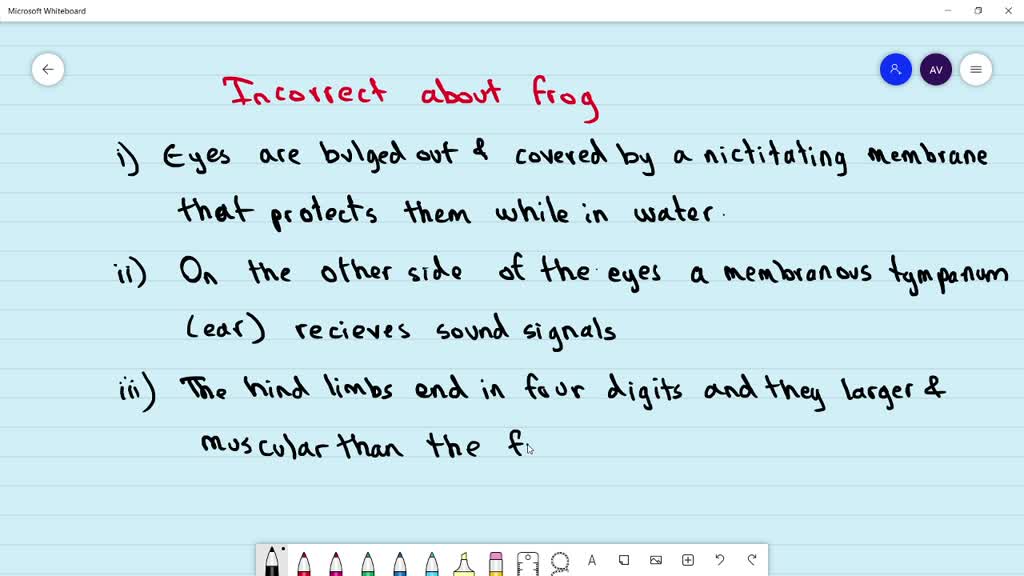 Microsoft Whiteboard
AV
Incorrect about frog
i) Eyes are bulged out & covered by a nictitating membrane
that protects them while in water.
ii) On the other side of the eyes a membranous tympanum
(ear) recieves sound signals
iii) The hind limbs end in four digits and they larger &
muscular than the f
A